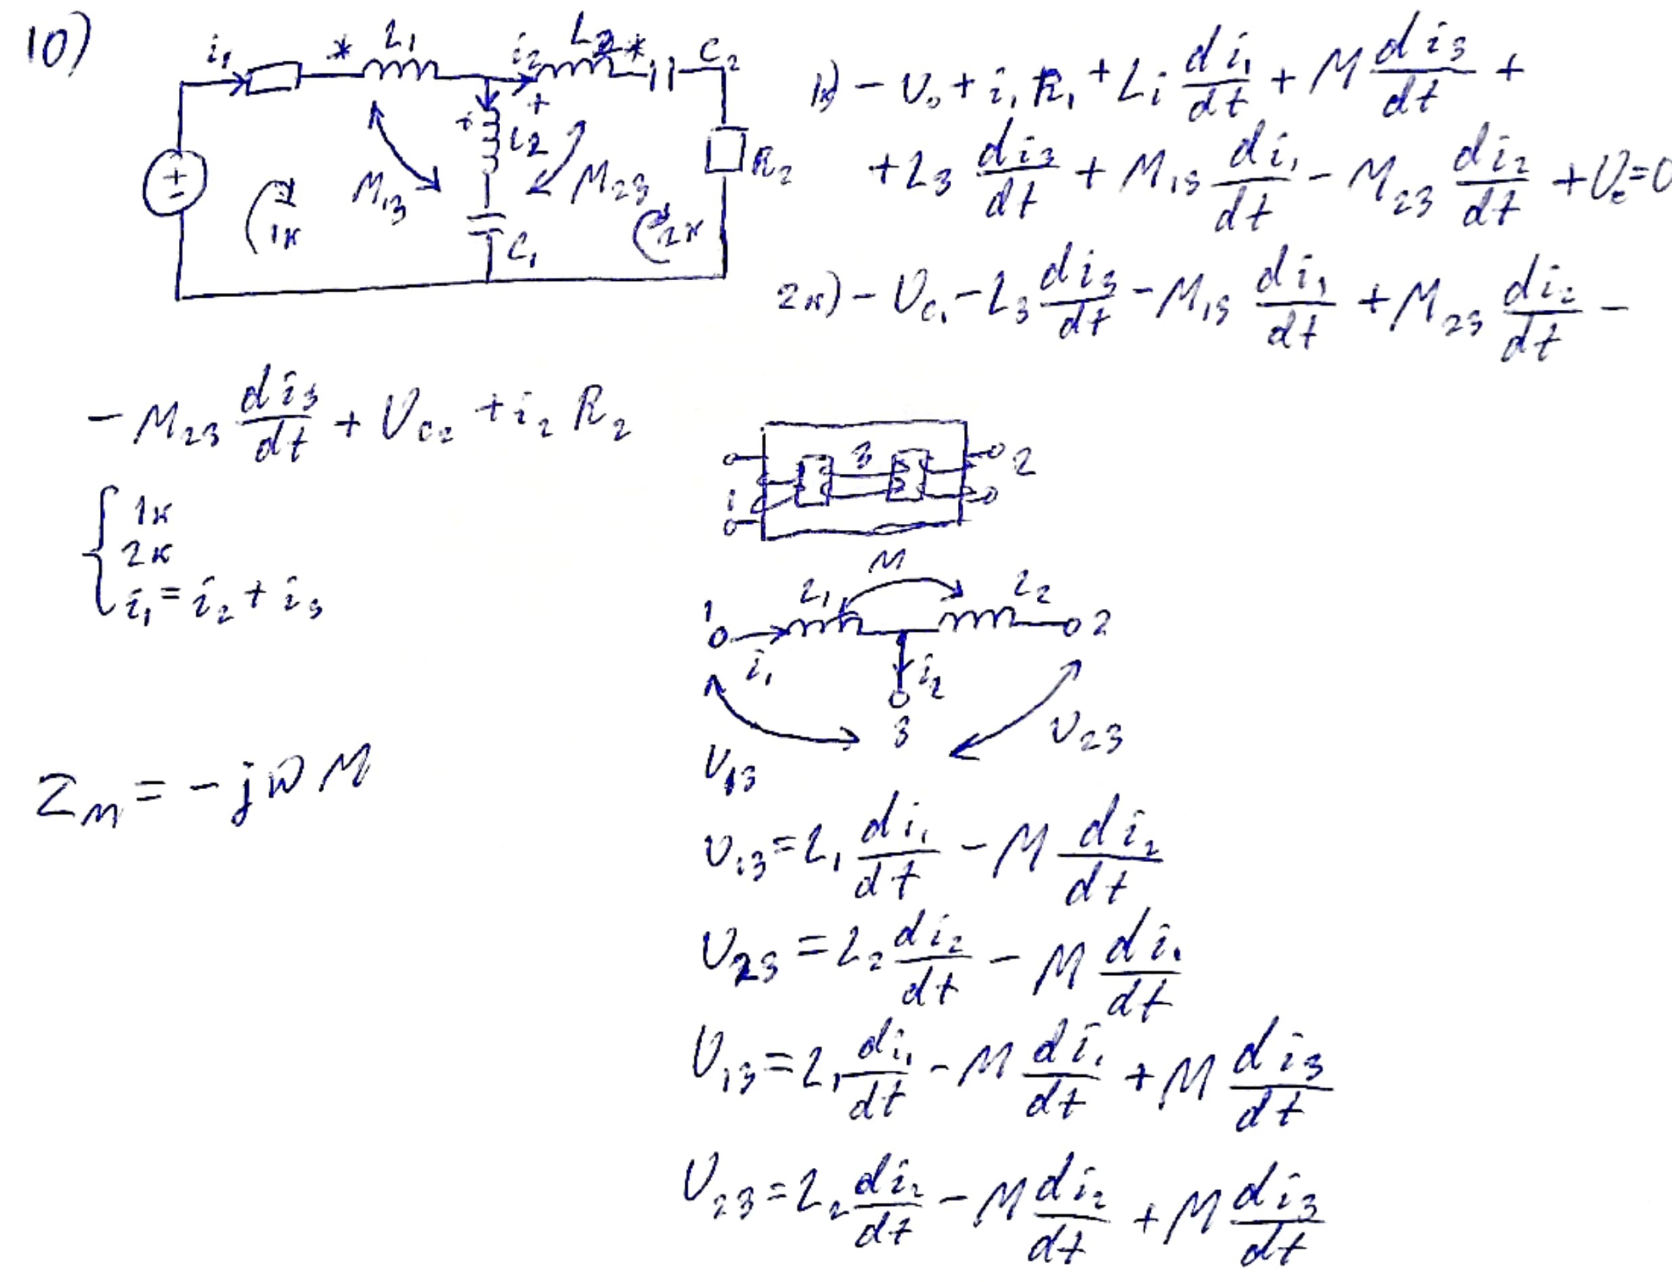 10)
i₁ * L₁ i₂ L₂ * C₂
+ L2 R₂
M₁₃ M₂₃
+
1к 2к
C₁
1к) - U₀ + i₁ R₁ + L₁ di₁/dt + M di₃/dt +
+ L₃ di₃/dt + M₁₃ di₁/dt - M₂₃ di₂/dt + U_c = 0
2к) - U_c₁ - L₃ di₃/dt - M₁₃ di₁/dt + M₂₃ di₂/dt -
- M₂₃ di₃/dt + U_c₂ + i₂ R₂
1к
2к
i₁ = i₂ + i₃
1 3 2
M
1 L₁ L₂ 2
i₁ i₂
3
U₁₃ U₂₃
Z_M = - jωM
U₁₃ = L₁ di₁/dt - M di₂/dt
U₂₃ = L₂ di₂/dt - M di₁/dt
U₁₃ = L₁ di₁/dt - M di₁/dt + M di₃/dt
U₂₃ = L₂ di₂/dt - M di₂/dt + M di₃/dt